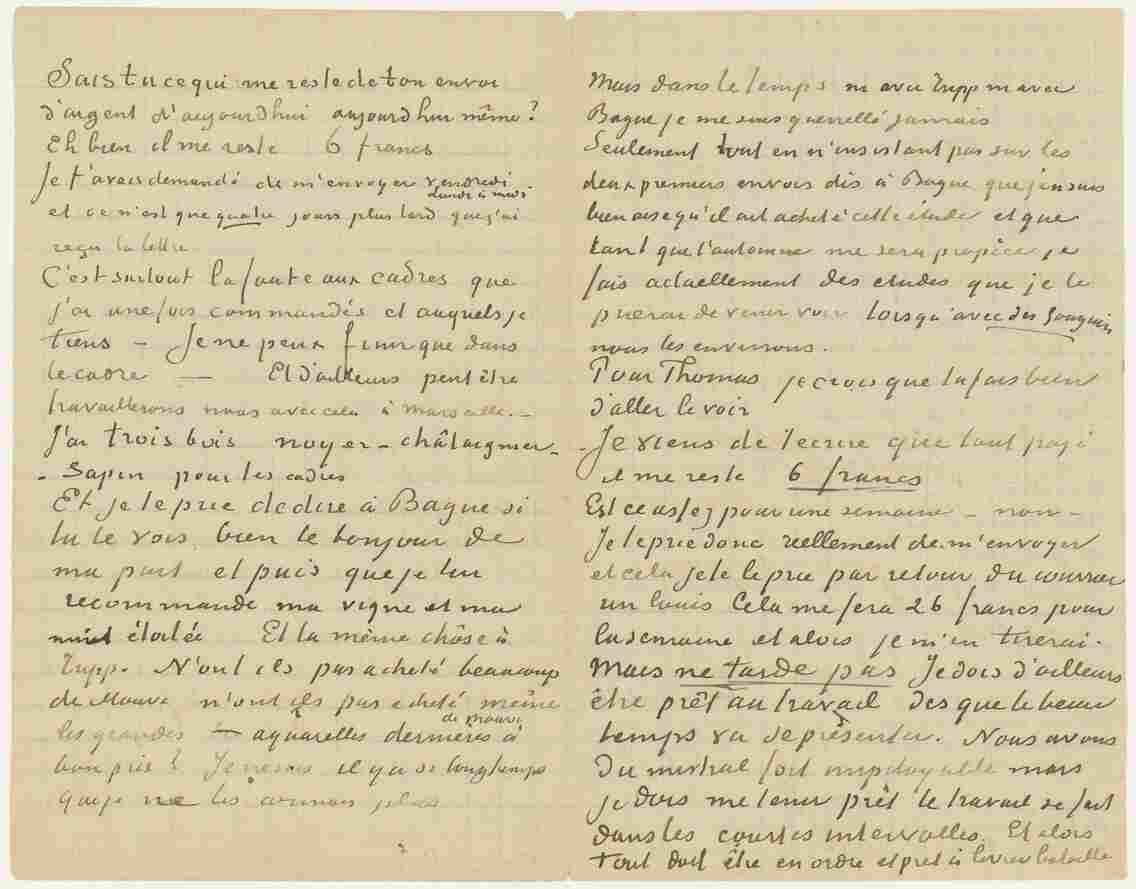 Sais tu ce qui me reste de ton envoi
d'argent d'aujourdhui aujourdhui même?
Eh bien il me reste 6 francs
Je t'avais demandé de m'envoyer vendredi
lundi à midi
et ce n'est que quatre jours plus tard que j'ai
reçu la lettre
C'est surtout la faute aux cadres que
j'ai une fois commandés et auquels je
tiens – Je ne peux finir que dans
le cadre — Et d'ailleurs peut être
travaillerons nous avec cela à Marseille. –
J'ai trois bois noyer – châtaigner –
– Sapin pour les cadres
Et je te prie de dire à Bague si
tu le vois bien le bonjour de
ma part et puis que je lui
recommande ma vigne et ma
nuit étoilée Et la même chôse à
Tripp. N'ont ils pas acheté beaucoup
de Mauve n'ont ils pas acheté même
les grandes – aquarelles dernières de Mauve à
bon prix? Je ne sais il y a si longtemps
que je ne les connais plus
Mais dans le temps ni avec Tripp ni avec
Bague je me suis querellé jamais
Seulement tout en n'insistant pas sur les
deux premiers envois dis à Bague que j'en suis
bien aise qu'il ait acheté cette étude et que
tant que l'automne me sera propice je
fais actuellement des etudes que je le
prierai de venir voir lorsqu'avec des Gauguin
nous les environs.
Pour Thomas je crois que tu fais bien
d'aller le voir
– Je viens de t'ecrire que tout payé
il me reste 6 francs
Est ce assez pour une semaine – non –
Je te prie donc reellement de m'envoyer
et cela je te le prie par retour du courrier
un louis Cela me fera 26 francs pour
la semaine et alors je m'en tirerai.
Mais ne tarde pas Je dois d'ailleurs
être prêt au travail des que le beau
temps va se présenter. Nous avons
du mistral fort impitoyable mais
je dois me tenir prêt le travail se fait
dans les courtes intervalles. Et alors
tout doit être en ordre et pret à livrer bataille